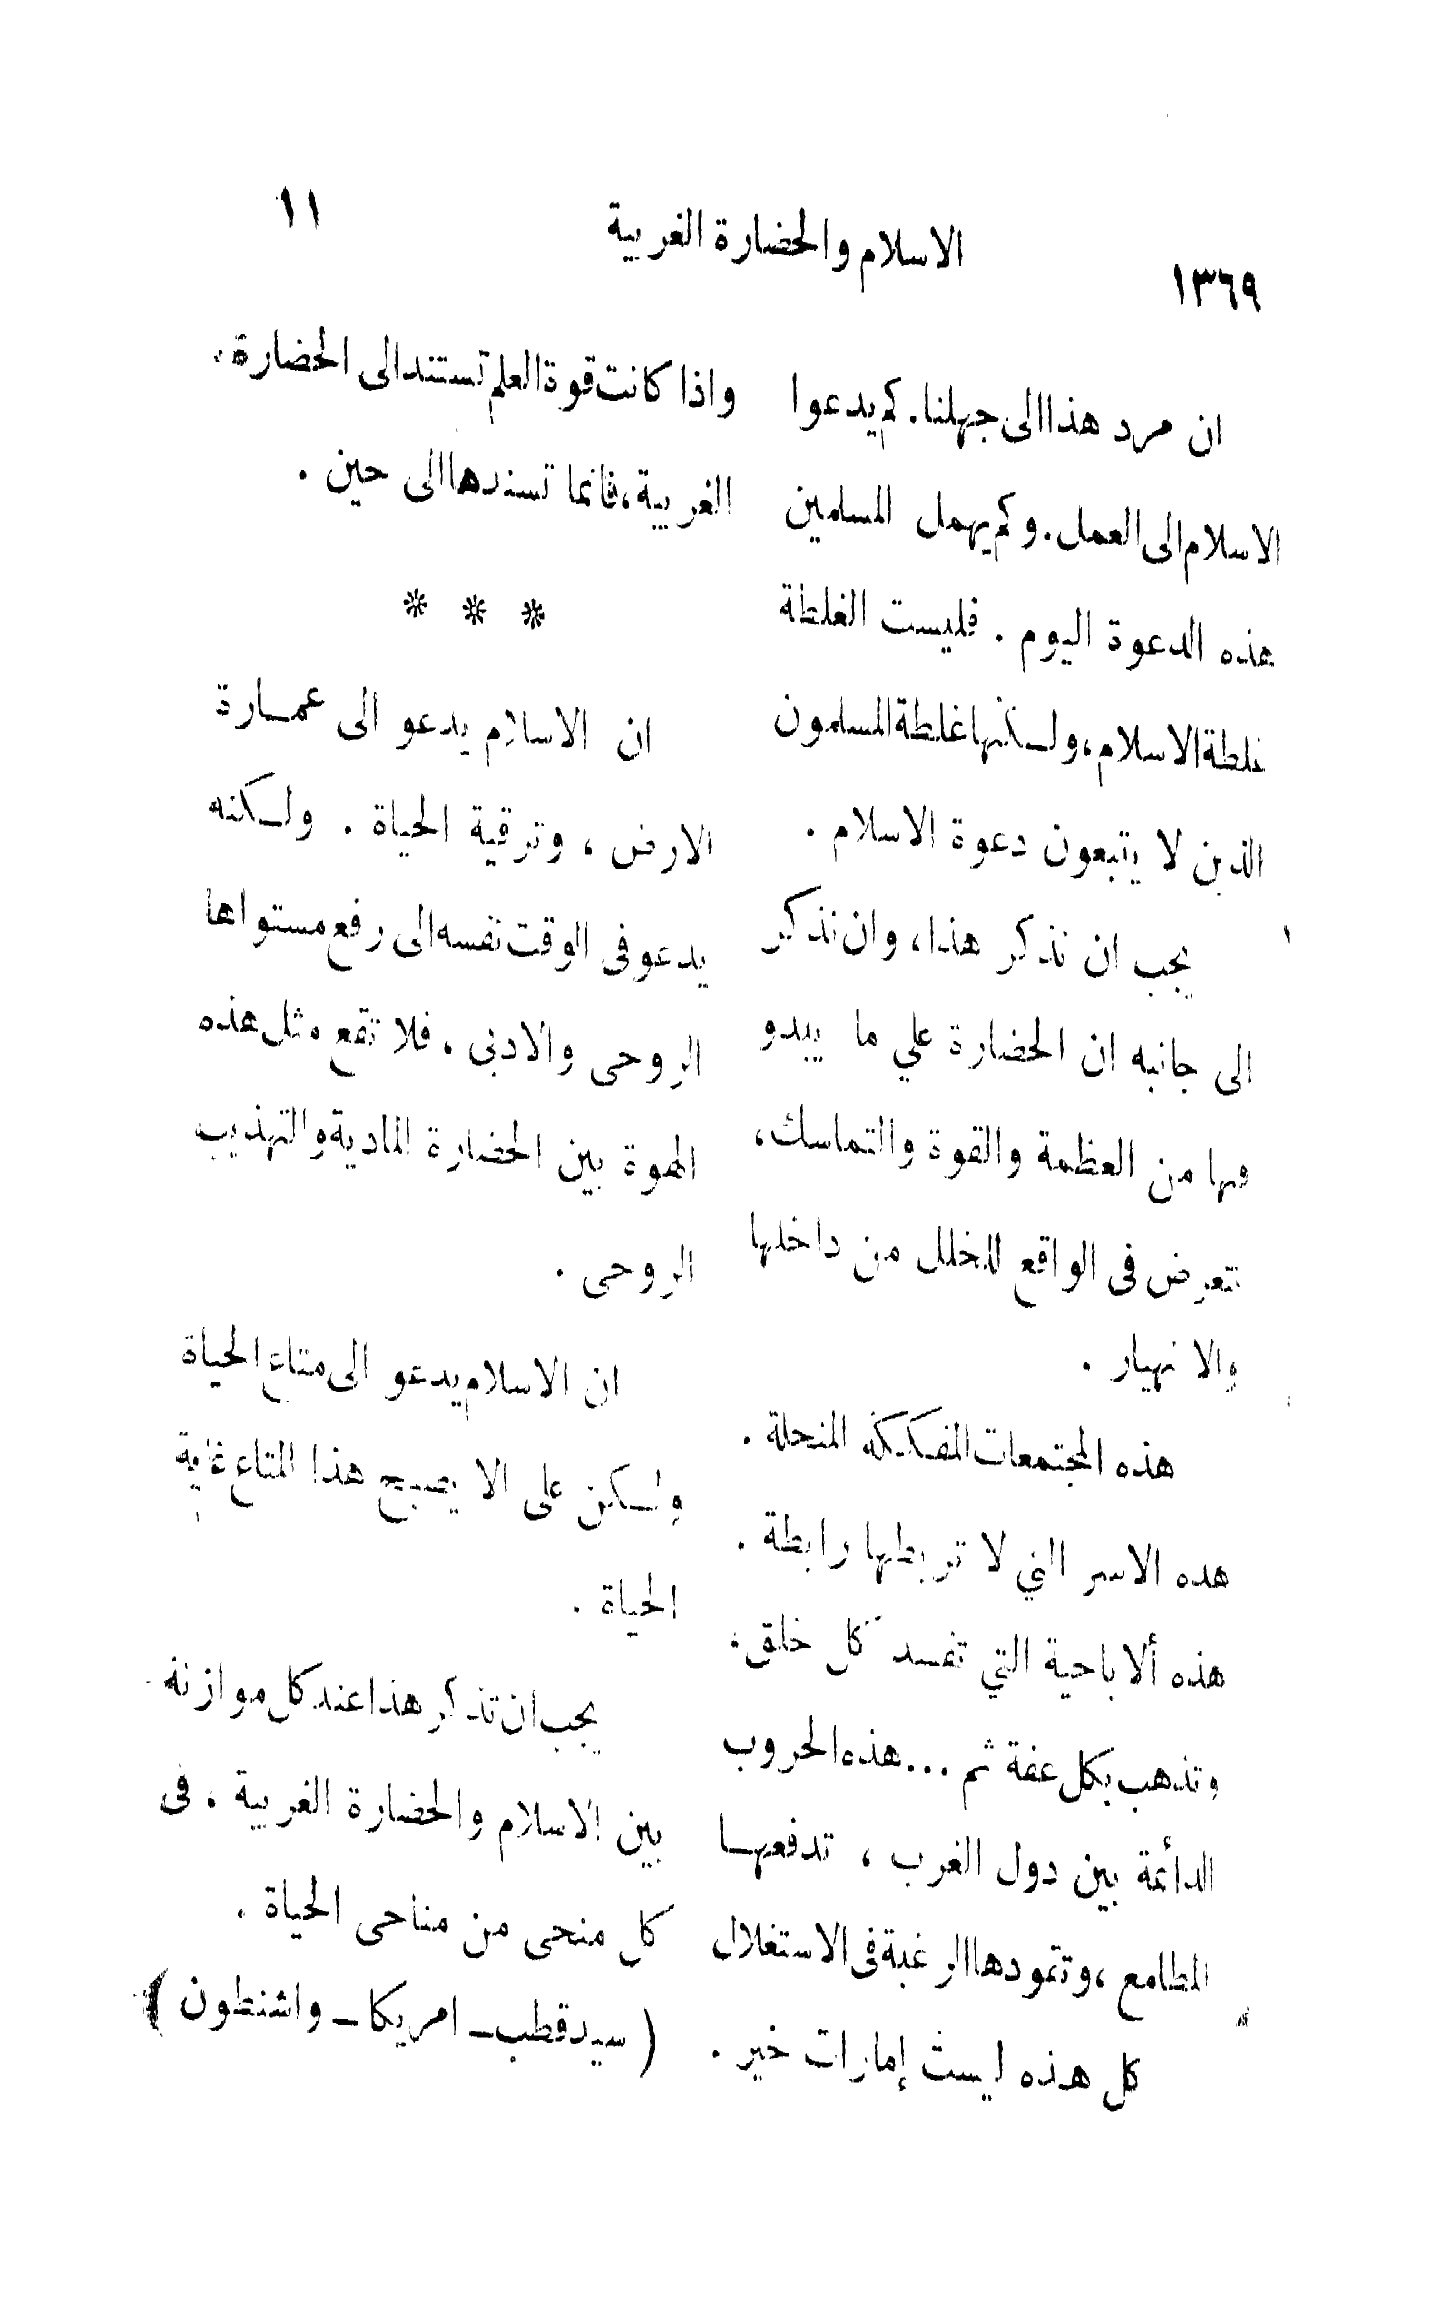 ١٣٦٩
الاسلام والحضارة الغربية
١١
ان مرد هذا الى جهلنا. كم يدعوا
الاسلام الى العمل. وكم يهمل المسلمين
هذه الدعوة اليوم . فليست الغلطة
غلطة الاسلام، ولكنها غلطة المسلمون
الذين لا يتبعون دعوة الاسلام .
يجب ان نذكر هذا، وان نذكر
الى جانبه ان الحضارة علي ما يبدو
فيها من العظمة والقوة والتماسك،
تتعرض فى الواقع للخلل من داخلها
والانهيار .
هذه المجتمعات المفككة المنحلة .
هده الاسر التي لا تربطها رابطة .
هذه ألاباحية التي تفسد كل خلق،
وتذهب بكل عفة ثم ... هذه الحروب
الدائمة بين دول الغرب ، تدفعها
المطامع ، وتقودها الرغبة فى الاستغلال
كل هذه ليست إمارات خير .
واذا كانت قوة العلم تستند الى الحضارة
الغربية، فانما تسندها الى حين .
* * *
ان الاسلام يدعو الى عمارة
الارض ، وترقية الحياة . ولكنه
يدعو فى الوقت نفسه الى رفع مستواها
الروحى والادبى ، فلا تقع مثل هذه
الهوة بين الحضارة المادية والتهذيب
الروحى .
ان الاسلام يدعو الى متاع الحياة
ولكن على الا يصبح هذا المتاع غاية
الحياة .
يجب ان تذكر هذا عند كل موازنة
بين الاسلام والحضارة الغربية ، فى
كل منحى من مناحى الحياة .
( سيد قطب ـ امريكا ـ واشنطون )